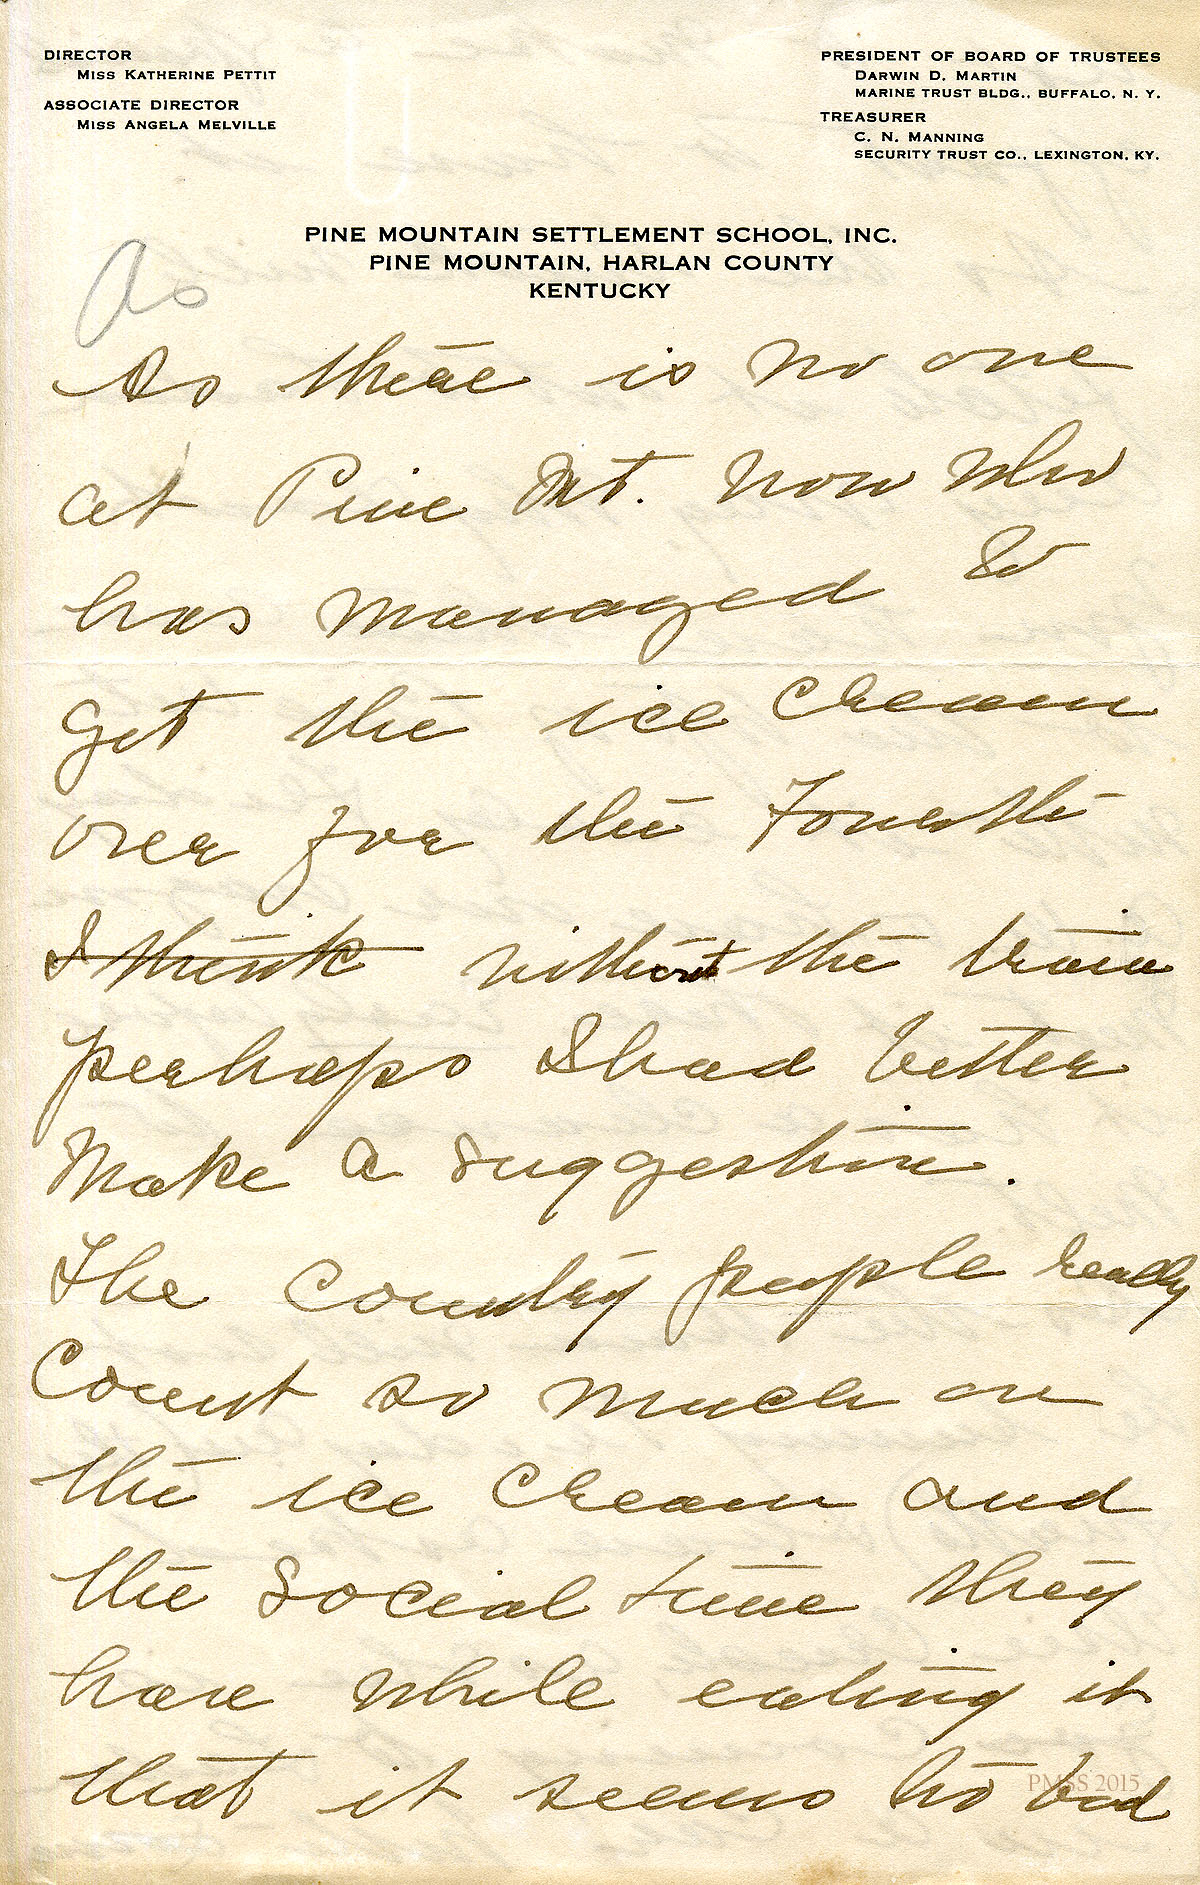 DIRECTOR
MISS KATHERINE PETTIT
ASSOCIATE DIRECTOR
MISS ANGELA MELVILLE
PRESIDENT OF BOARD OF TRUSTEES
DARWIN D. MARTIN
MARINE TRUST BLDG., BUFFALO, N. Y.
TREASURER
C. N. MANNING
SECURITY TRUST CO., LEXINGTON, KY.
PINE MOUNTAIN SETTLEMENT SCHOOL, INC.
PINE MOUNTAIN, HARLAN COUNTY
KENTUCKY
As
As there is no one
at Pine Mt. now who
has managed to
get the ice cream
over for the Fourth
I think without the train
perhaps I had better
make a suggestion.
The country people really
count so much on
the ice cream and
the social time they
have while eating it
that it seems too bad
PMSS 2015